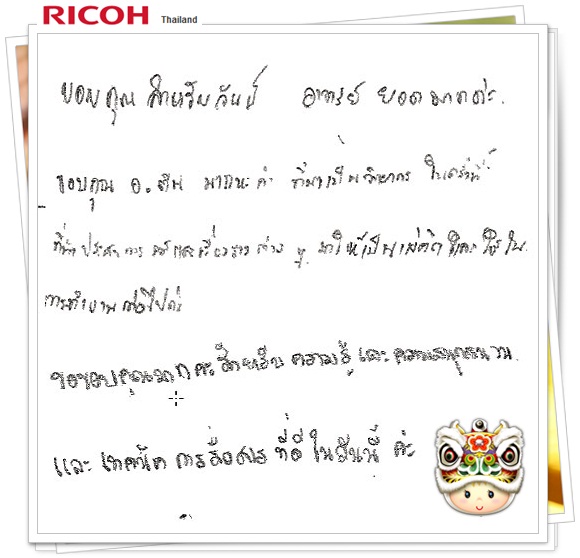 RICOH Thailand
ขอบคุณ สำหรับวันนี้ อาจารย์ ยอดมากค่ะ.
ขอบคุณ อ. มากนะค่ะ ที่มาเป็นวิทยากร ในครั้งนี้
ที่นำประสบการณ์และเรื่องราวต่าง ๆ มาให้เป็นแง่คิดและใช้ใน
การทำงานต่อไปค่ะ
ขอขอบคุณมาก ค่ะ สำหรับ ความรู้ และ ความสนุกสนาน
และ เทคนิค การสื่อสาร ที่ดี ในวันนี้ ค่ะ